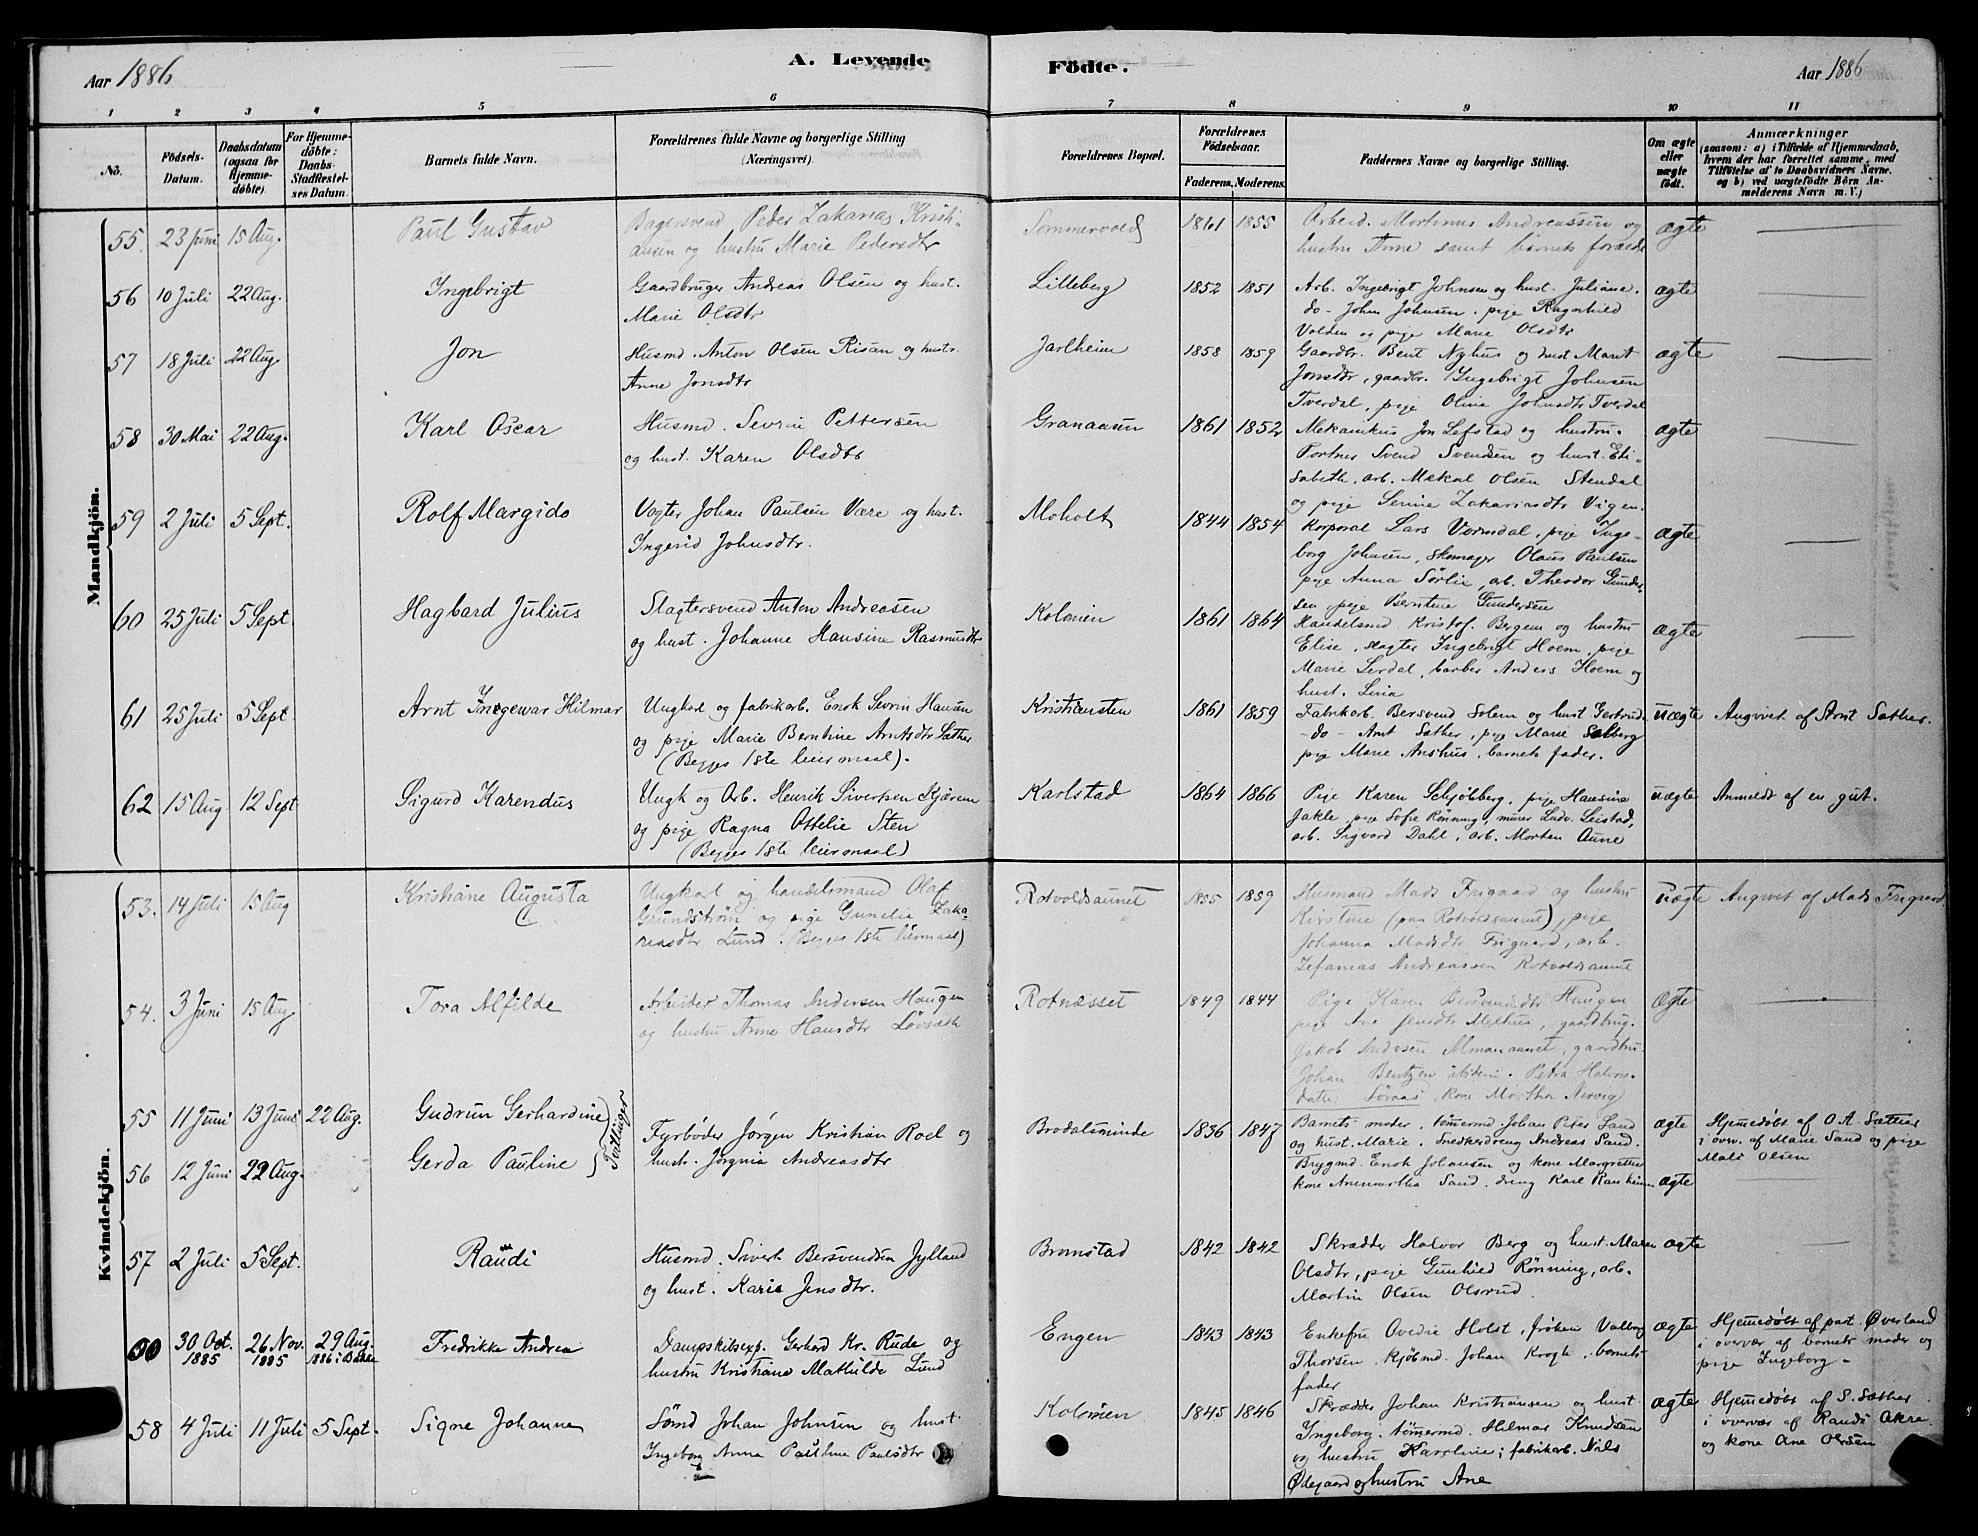 Aar 1886
A. Levende
Födte.
Aar 1886
1 2 3 4 5 6 7 8 9 10 11
No.
Födsels-Datum.
Daabsdatum (ogsaa for Hjemme-döbte).
For Hjemme-döbte: Daabs-Stadfæstel-ses Datum.
Barnets fulde Navn.
Forældrenes fulde Navne og borgerlige Stilling (Næringsvei).
Forældrenes Bopæl.
Forældrenes Födselsaar.
Faderens. Moderens.
Faddernes Navne og borgerlige Stilling.
Om ægte eller uægte födt.
Anmærkninger
(saasom: a) i Tilfælde af Hjemmedaab, hvem der har forrettet samme, med Tilföielse af to Daabsvidners Navne, og b) ved uægtefödte Börn An-melderens Navn m. V.)
Mandkjön.
55. 23 Juni 15 Aug. Paul Gustav Bagersvend Peder Zakarias Kristi-
ansen og hustru Marie Pedersdtr Sommervold 1861 1855 Arbeid. Mortinus Andreassen og
hustru Anne samt barnets forældr ægte
56 10 Juli 22 Aug. Ingebrigt Gaardbruger Andreas Olsen og hust.
Marie Olsdtr Lilleberg 1852 1851 Arb. Ingebrigt Johnsen og hust. Juliane.
do - John Johnsen. pige Ragnhild
Volden og pige Marie Olsdtr ægte
57 18 Juli 22 Aug. Jon Husmd. Anton Olsen Risan og hustr.
Anne Jonsdtr Jarlheim 1858 1859 Gaardbr. Bent Nyhus og hust Marit
Jonsdtr, gaardbr. Ingebrigt Johnsen
Tverdal, pige Olina Johnsdtr Tverdal ægte
58 30 Mai 22 Aug. Karl Oscar Husmd. Sevrin Pettersen
og hust. Karen Olsdtr Granaasen 1861 1852 Mekanikus Jon Lefstad og hustru.
Portner Svend Svendsen og hust. Eli-
sabeth, arb. Mekal Olsen Stendal
og pige Senine Zakariasdtr Vigen. ægte
59 2 Juli 5 Sept. Rolf Margido Vogter Johan Paulsen Være og hust.
Ingerid Johnsdtr. Moholt 1844 1854 Korporal Lars Vormdal, pige Inge-
borg Johnsen, skomager Olaus Paulsen
pige Anna Sörlie, arb. Theodor Gunder-
sen, pige Berntine Gundersen ægte
60 25 Juli 5 Sept. Hagbard Julius Slagtersvend Anton Andreasen
og hust. Johanne Hansine Rasmusdtr Kolonien 1861 1864 Handelsmd. Kristof. Bergem og hustru
Elise, slagter Ingebrigt Hoem, pige
Marie Lerdal, barber Anders Hoem og
hust. Lina ægte
61 25 Juli 5 Sept. Arnt Ingewar Hilmar Ungkarl og fabrikarb. Enok Sevrin Hansen
og pige Marie Berntine Arntsdtr Sæther
(Begges 1ste leiermaal). Kristiansten 1861 1859 Fabrikarb. Bersvend Solem og hust Gertrud.
- do - Arnt Sæther, pige Marie Solberg
pige Marie Anshus, barnets fader. uægte Angivet af Arnt Sæther.
62 15 Aug. 12 Sept. Sigurd Karendus Ungk og Arb. Henrik Sivertsen Kjærem
og pige Ragna Ottelie Sten
(Begges 1ste leiermaal) Karlstad 1864 1866 Pige Karen Schjölberg, pige Hansine
Jakle, pige Sofie Rönning, murer Ludv. Leistad,
arb. Sigvard Dahl, arb. Morten Aune uægte Anmeldt af en gut.
Kvindekjön.
53. 14 Juli 15 Aug Kristiane Augusta Ungkarl og handelsmand Olaf
Grundström og pige Gunelie Zaka-
riasdtr Lund. (Begges 1ste leiermaal) Rotvoldsaunet 1855 1859 Husmand Mads Frigaard og hustru
Kirstine (paa Rotvoldsaunet), pige
Johanna Madsdtr Frigaard, arb.
Zefanias Andreassen Rotvoldsaunet uægte Angivet af Mads Frigaard
54. 3 Juni 15 Aug Tora Alfilde Arbeider Thomas Andersen Haugen
og hustru Anne Hansdtr Lövseth Rotnæsset 1849 1844 Pige Karen Bersvendsdtr Haugen
pige Ane Jensdtr Melhus, gaardbrug.
Jakob Andersen Almanaunet, gaardbru.
Johan Bentzen ibidem. Petra Halvors-
datter Søraas, kone Martha Nervig ægte
55 11 Juni 13 Juni 22 Aug. Gudrun Gerhardine
56 12 Juni 22 Aug. Gerda Pauline
Tvillinger
Fyrböder Jörgen Kristian Roel og
hustr. Jörgina Andreasdtr Brodalsminde 1836 1847 Barnets moder, tömermd. Johan Peter Sand
og hust. Marie. Snekkerdreng Andreas Sand.
Brygmd. Enok Johansen og kone Margrethe
kone Anemartha Sand. dreng Karl Ranheim ægte ægte Hjemedöbt af O. A. Sætter
i overv. af Marie Sand og pige
Mali Olsen
57 2 Juli 5 Sept. Randi Husmd. Sivert Bersvendsen Jylland
og hust. Karie Jensdtr. Bromstad 1842 1842 Skrædder Halvor Berg og hust. Maren
Olsdtr, pige Gunhild Rönning, arb.
Martin Olsen Olsrud. ægte
30 Oct. 1885 26 Nov. 1885 29 Aug. 1886 i Bakke Fredrikke Andrea Dampskibsexp. Gerhard Kr. Rude og
hustru Kristiane Mathilde Lund Engen 1843 1843 Enkefru Ovedie Holst, fröken Valborg
Thorsen. kjöbmd. Johan Krogh, barnets
fader ægte Hjemedöbt af past. Överland
i overvær af barnets moder og
pige Ingeborg -
58 4 Juli 11 Juli 5 Sept. Signe Johanne Sömd Johan Johnsen og hust.
Ingeborg Anna Pauline Paulsdtr Kolonien 1845 1846 Skrædder Johan Kristiansen og hust
Ingeborg. tömermd. Hilmar Knudsen
og hustru Karoline; fabrikarb. Nils
Ödegaard og hustru Ane ægte Hjemedöbt af S. Sæther
i overvær af Randi Okre.
og kone Ane Olsen